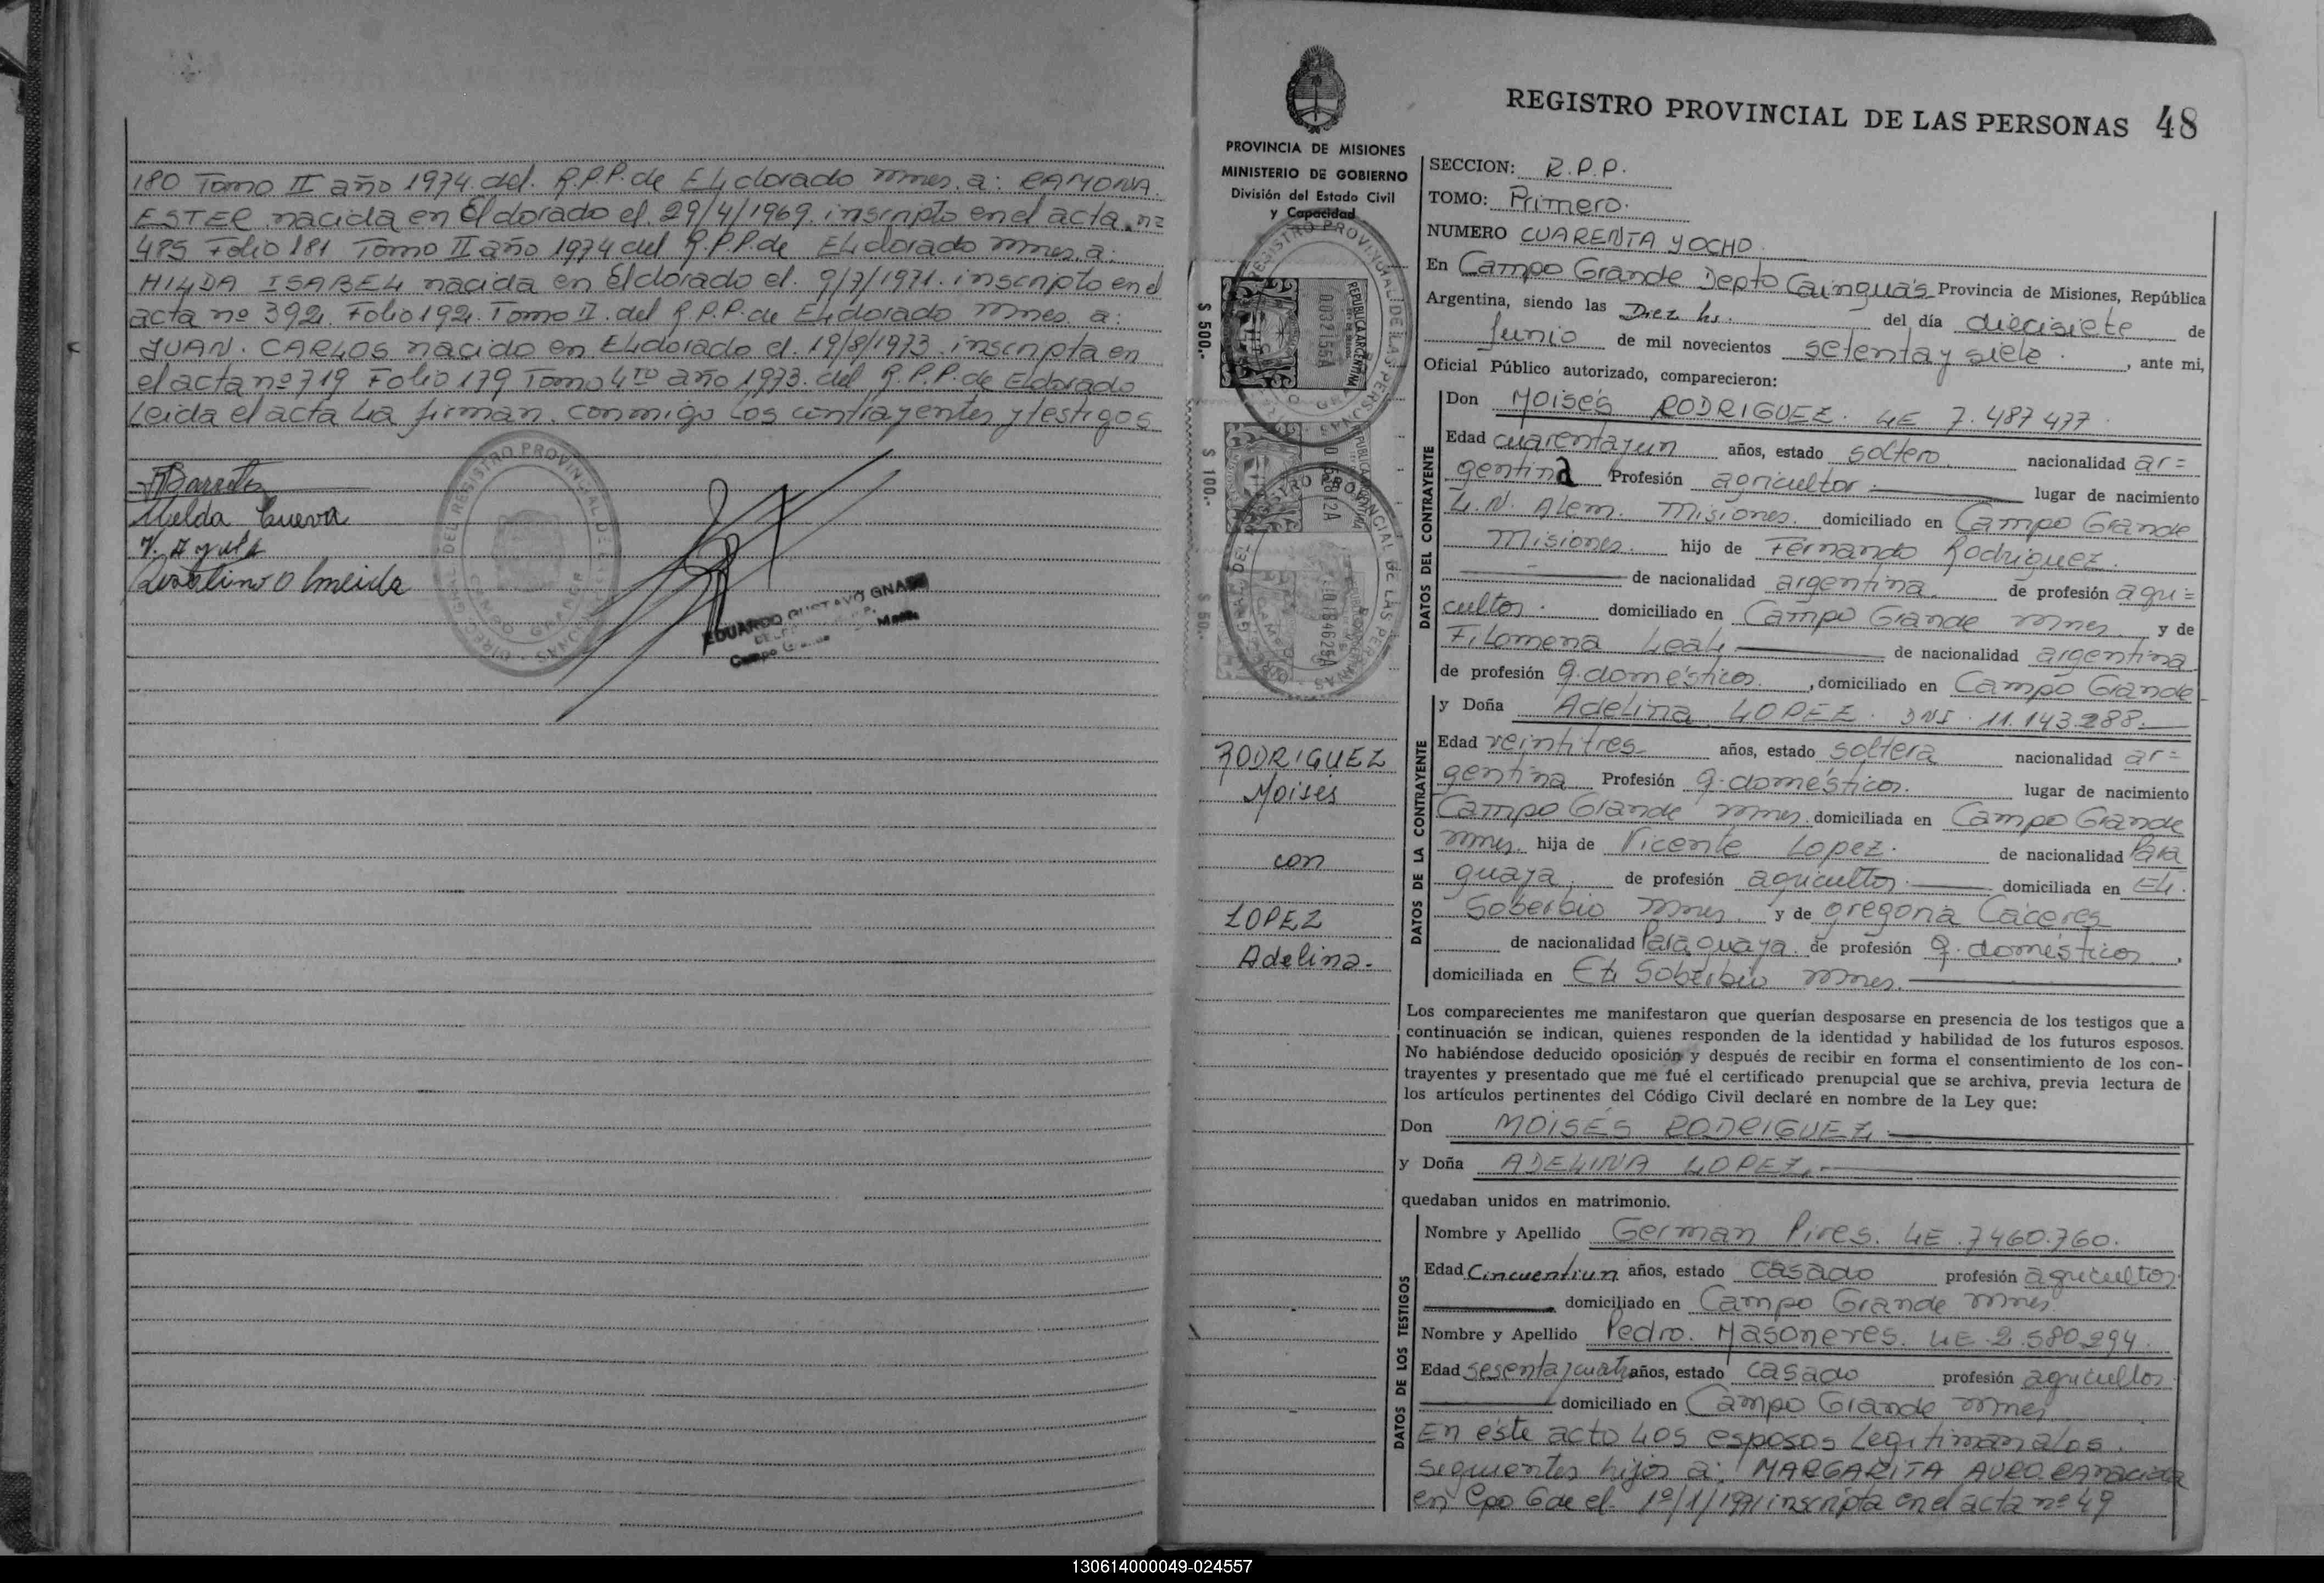 180 Tomo II año 1974. del. R.P.P. de Eldorado mnes. a: RAMONA
ESTER. nacida en Eldorado el. 29/4/1969. inscripto en el acta nº
485 Folio 181 Tomo II año 1974 del R.P.P. de Eldorado mnes. a:
HILDA ISABEL nacida en Eldorado el. 9/7/1971. inscripto en el
acta nº 392. Folio 192. Tomo II. del R.P.P. de Eldorado mnes. a:
JUAN. CARLOS nacido en Eldorado el. 19/8/1973. inscripta en
el acta nº 719 Folio 179 Tomo 4to año 1973. del R.P.P. de Eldorado
Leida el acta La firman. conmigo Los contrayentes y testigos
Cueva
V. Ayala
EDUARDO GUSTAVO
Campo
REGISTRO PROVINCIAL DE LAS PERSONAS 48
PROVINCIA DE MISIONES
MINISTERIO DE GOBIERNO
División del Estado Civil
y Capacidad
$ 500.-
REPUBLICA ARGENTINA
$ 100.-
$ 50.-
RODRIGUEZ
Moisés
con
LOPEZ
Adelina.-
SECCION: R.P.P.
TOMO: Primero.
NUMERO CUARENTA Y OCHO.
En Campo Grande Depto Cainguás Provincia de Misiones, República
Argentina, siendo las Diez hs. del día diecisiete de
Junio de mil novecientos setenta y siete. , ante mi,
Oficial Público autorizado, comparecieron:
DATOS DEL CONTRAYENTE
Don Moisés RODRIGUEZ. LE 7.487477.
Edad cuarenta y un años, estado soltero nacionalidad ar=
gentina Profesión agricultor. lugar de nacimiento
L.N. Alem. Misiones. domiciliado en Campo Grande
Misiones. hijo de Fernando Rodriguez.
de nacionalidad argentina. de profesión agri=
cultor. domiciliado en Campo Grande mnes y de
Filomena Leal de nacionalidad argentina
de profesión q. domésticos. , domiciliado en Campo Grande
DATOS DE LA CONTRAYENTE
y Doña Adelina LOPEZ. DNI. 11.143.288.
Edad veintitres años, estado soltera nacionalidad ar=
gentina Profesión q. domésticos. lugar de nacimiento
Campo Grande mnes. domiciliada en Campo Grande
mnes. hija de Vicente Lopez. de nacionalidad Para
guaya. de profesión agricultor. domiciliada en El.
Soberbio mnes. y de gregoria Cáceres
de nacionalidad Paraguaya. de profesión q. domésticos ,
domiciliada en El Soberbio mnes.
Los comparecientes me manifestaron que querían desposarse en presencia de los testigos que a
continuación se indican, quienes responden de la identidad y habilidad de los futuros esposos.
No habiéndose deducido oposición y después de recibir en forma el consentimiento de los con-
trayentes y presentado que me fué el certificado prenupcial que se archiva, previa lectura de
los artículos pertinentes del Código Civil declaré en nombre de la Ley que:
Don MOISÉS RODRIGUEZ.
y Doña ADELINA LOPEZ.
quedaban unidos en matrimonio.
DATOS DE LOS TESTIGOS
Nombre y Apellido German Pires. LE. 7460.760.
Edad Cincuentiun años, estado casado profesión agricultor
domiciliado en Campo Grande mnes.
Nombre y Apellido Pedro. Masoneres. LE. 2.580.294.
Edad sesenta y cuatro años, estado casado profesión agricultor
domiciliado en Campo Grande mnes
En éste acto Los esposos Legitiman a Los.
siguientes hijos a: MARGARITA AURORA nacida
en Cpo Gde el 1º/1/1971 inscripta en el acta nº 49
130614000049-024557